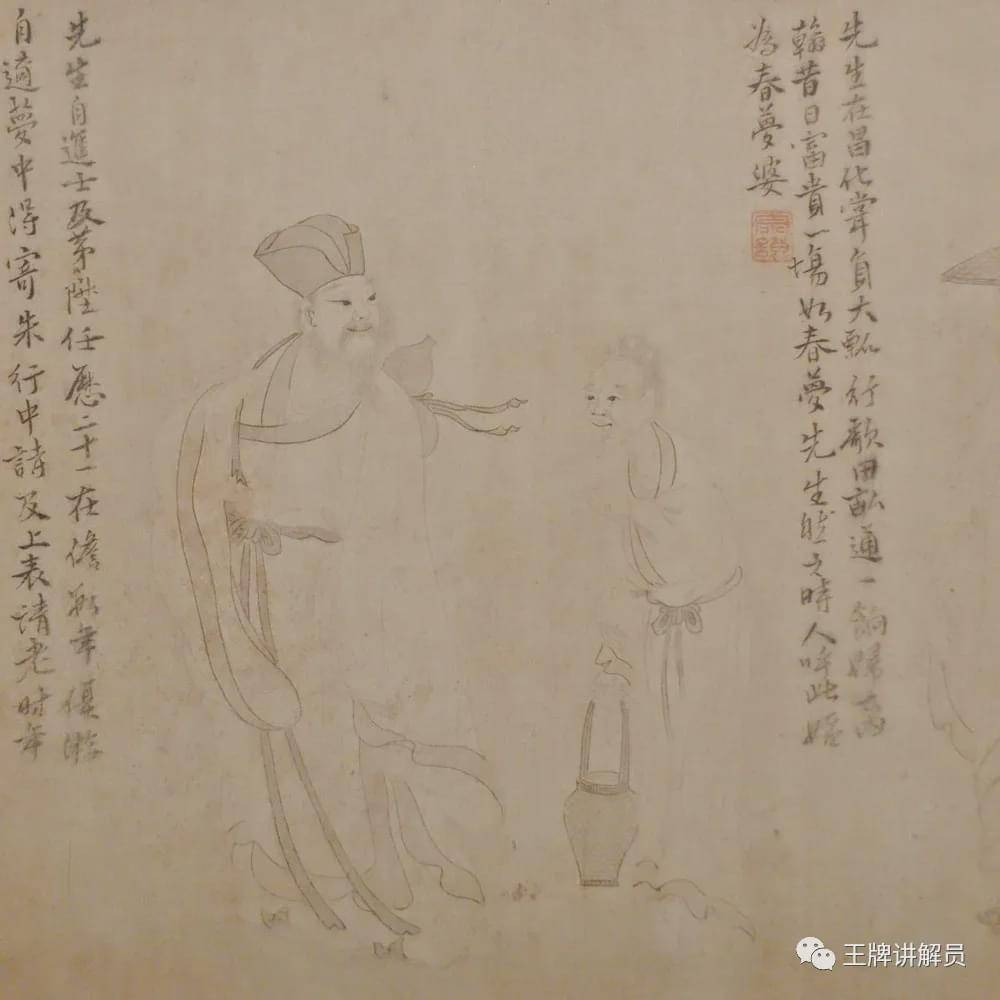 先生在昌化嘗負大瓢行歌田畝通一餉婦
翰昔日富貴一場如春夢先生然之時人呼此媼
為春夢婆
先生自進士及第陞任歷二十一在儋數年優游
自適夢中得寄朱行中詩及上表請老時年
王牌讲解员